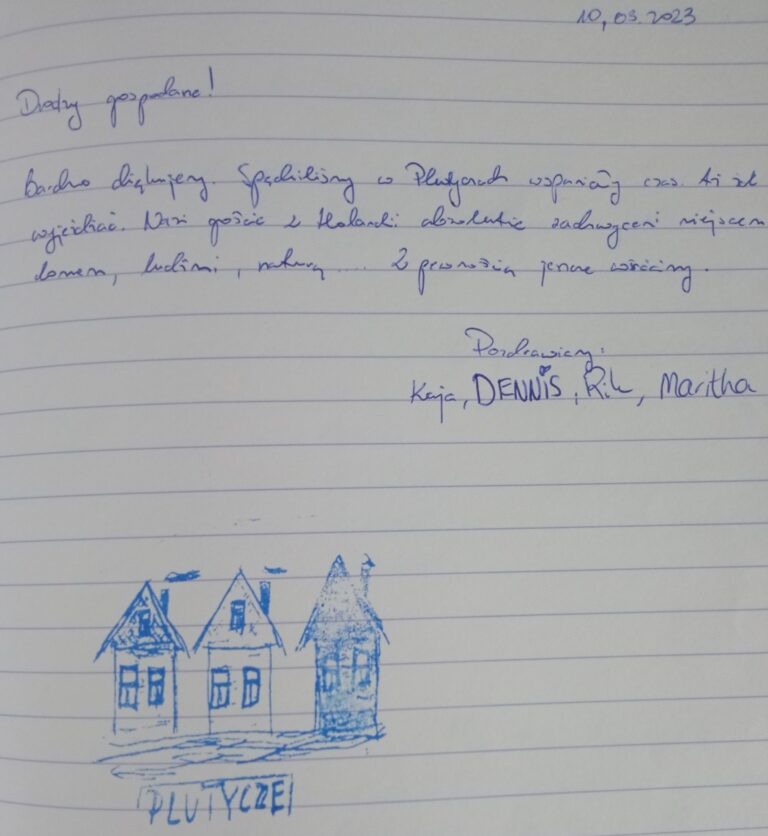 10.03.2023
Drodzy gospodarze!
Bardzo dziękujemy. Spędziliśmy w Plutyczach wspaniały czas. Aż żal
wyjeżdżać. Nasi goście z Holandii absolutnie zachwyceni miejscem
domem, ludźmi, naturą.... Z pewnością jeszcze wrócimy.
Pozdrawiamy:
Kaja, DENNIS, Rik, Maritha
PLUTYCZE